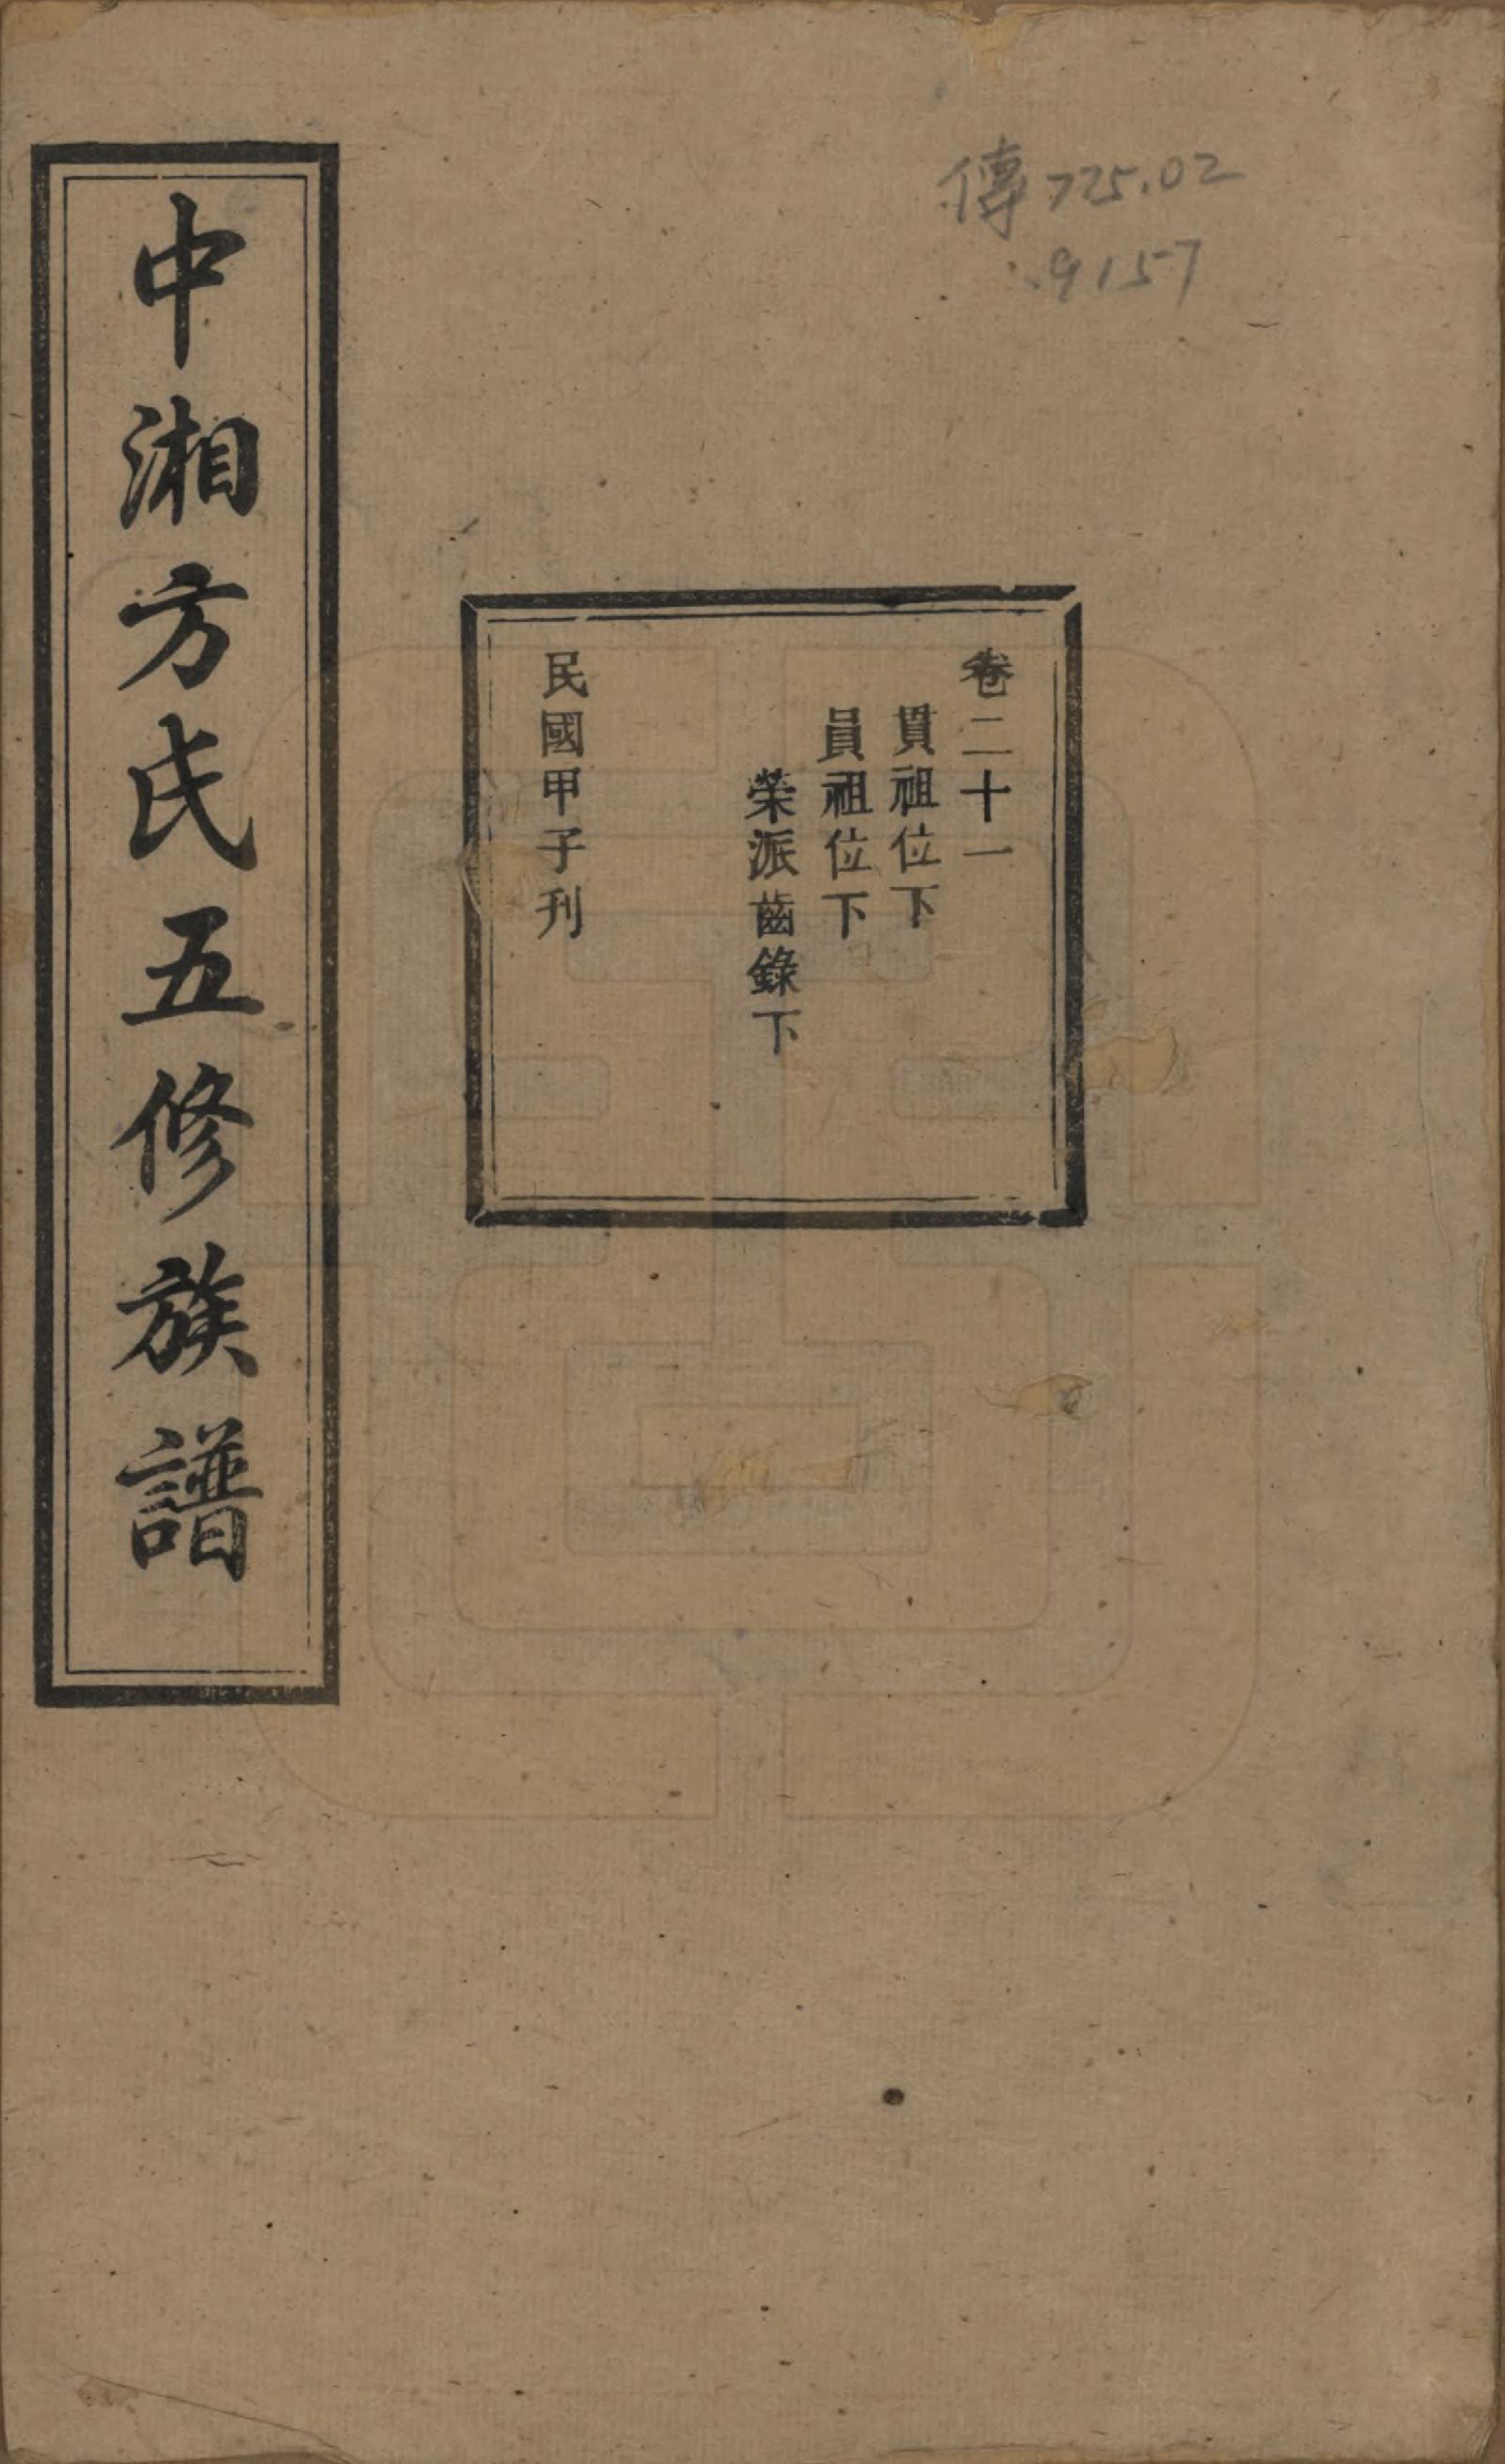 傳725.02
.9157
卷二十一
貫祖位下
員祖位下
榮派齒錄下
民國甲子刊
中湘方氏五修族譜